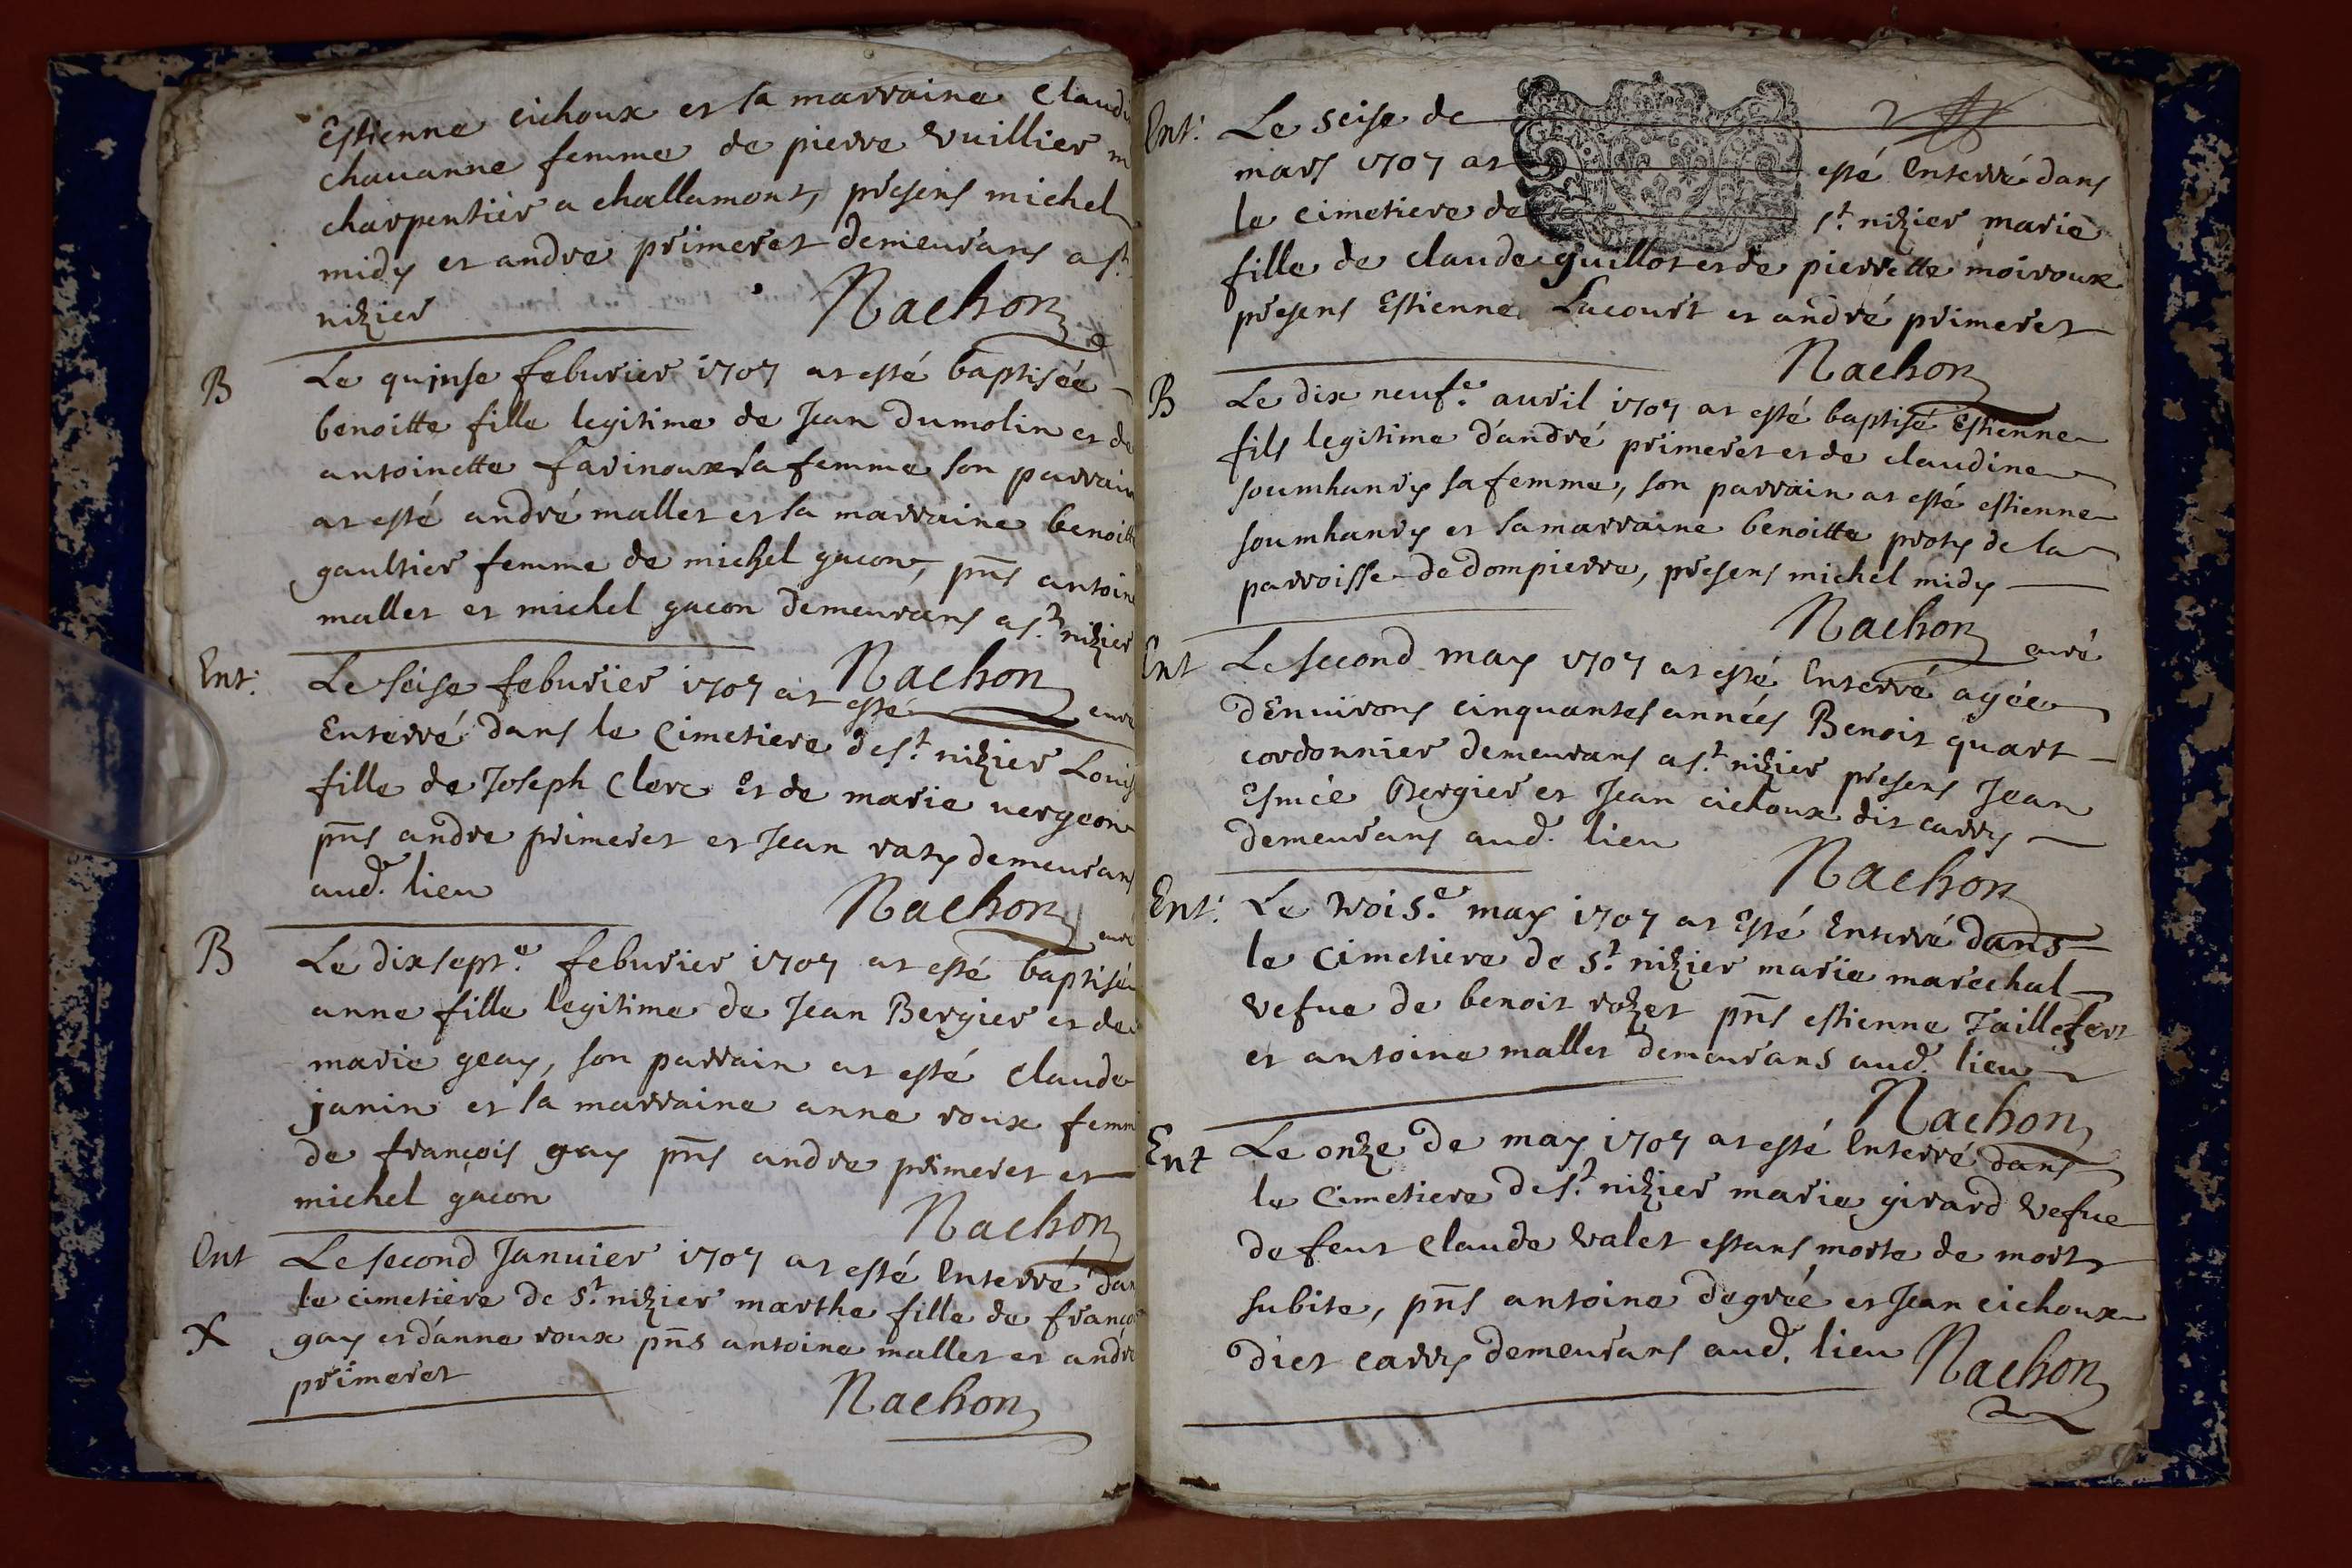 Estienne cichoux et sa marraine Claudi
chauanne femme de pierre Vuillier m
charpentier a challamont, presens michel
midy et andre primeret demeurans a st
nizier
Nachon
B
Le quinse feburier 1707 at esté baptisée
benoitte fille legitime de Jean Dumolin et de
antoinette farinoux sa femme son parrain
at esté andré mallet et sa marraine benoitt
gaultier femme de michel gacon, pns antoine
mallet et michel gacon demeurans a st nizier
Nachon curé
Ent:
Le seise feburier 1707 at esté
Enterré dans le Cimetiere de st nizier Louis
fille de Joseph Clerc Et de marie vergeon
pns andre primeret et Jean raty demeurans
aud. lieu
Nachon curé
B
Le dixsept.e feburier 1707 at esté baptisée
anne fille legitime de Jean Bergier et de
marie geay, son parrain at esté Claude
janin et sa marraine anne roux femm
de françois gay pns andre primeret et
michel gacon
Nachon
Ent
Le second Januier 1707 at esté Enterré dan
le cimetiere de st nizier marthe fille de franço
X
gay et d'anne roux pns antoine mallet et andre
primeret
Nachon
Ent:
Le seise de
mars 1707 at esté Enterré dans
le Cimetiere de st nizier marie
fille de claude guillot et de pierrette moiroux
presens Estienne Lacourt et andré primeret
Nachon
B
Le dix neuf.e auril 1707 at esté baptisé Estienne
fils legitime d'andré primeret et de claudine
soumhanry sa femme, son parrain at esté estienne
soumhanry et sa marraine benoitte proty de la
parroisse de dompierre, presens michel midy
Nachon curé
Ent
Le second may 1707 at esté Enterré agée
d'Enuirons cinquantes années Benoit quart
cordonnier demeurans a st nizier presens Jean
Esmée Bergier et Jean cichoux dit carry
demeurans aud. lieu
Nachon
Ent:
Le trois.e may 1707 at Esté Enterré dans
le Cimetiere de st nizier marie marechal
vefue de benoit rozet pns estienne Taillefert
et antoine mallet demeurans aud. lieu
Nachon
Ent
Le onze de may 1707 at esté Enterré dans
le Cimetiere de st nizier marie girard Vefue
de feut Claude Valet estans morte de mort
subite, pns antoine degrée et Jean cichoux
diet carry demeurans aud. lieu
Nachon